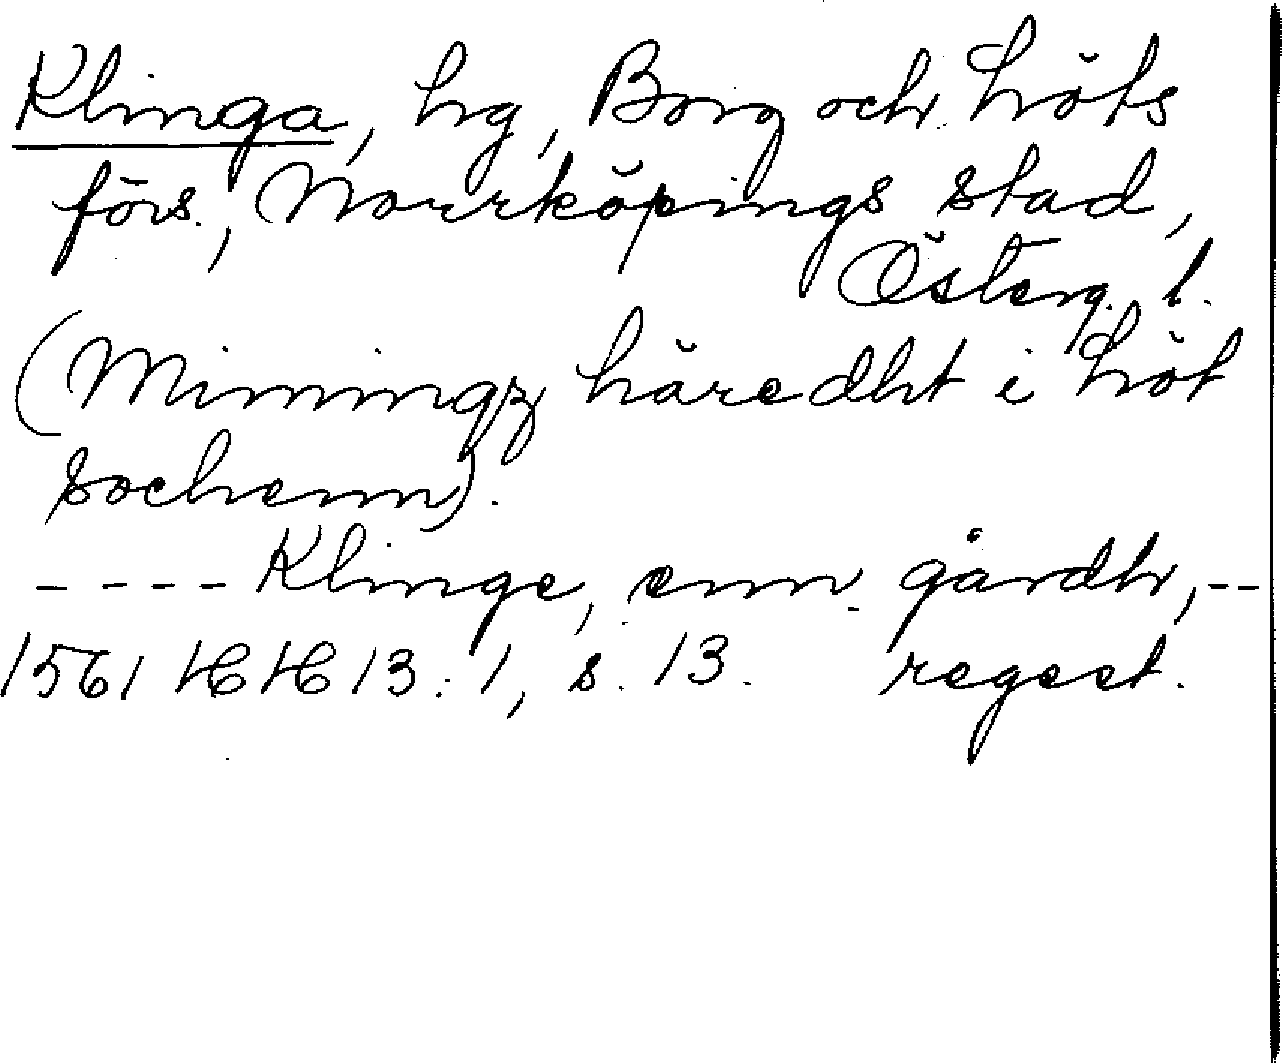 Klinga, hg, Borg och Löts
förs., Norrköpings stad,
Österg. l.
(Mimingz häredht i Löt
sochenn).
---- Klinge, enn gårdh, --
1561 HH 13:1, s. 13. regest.